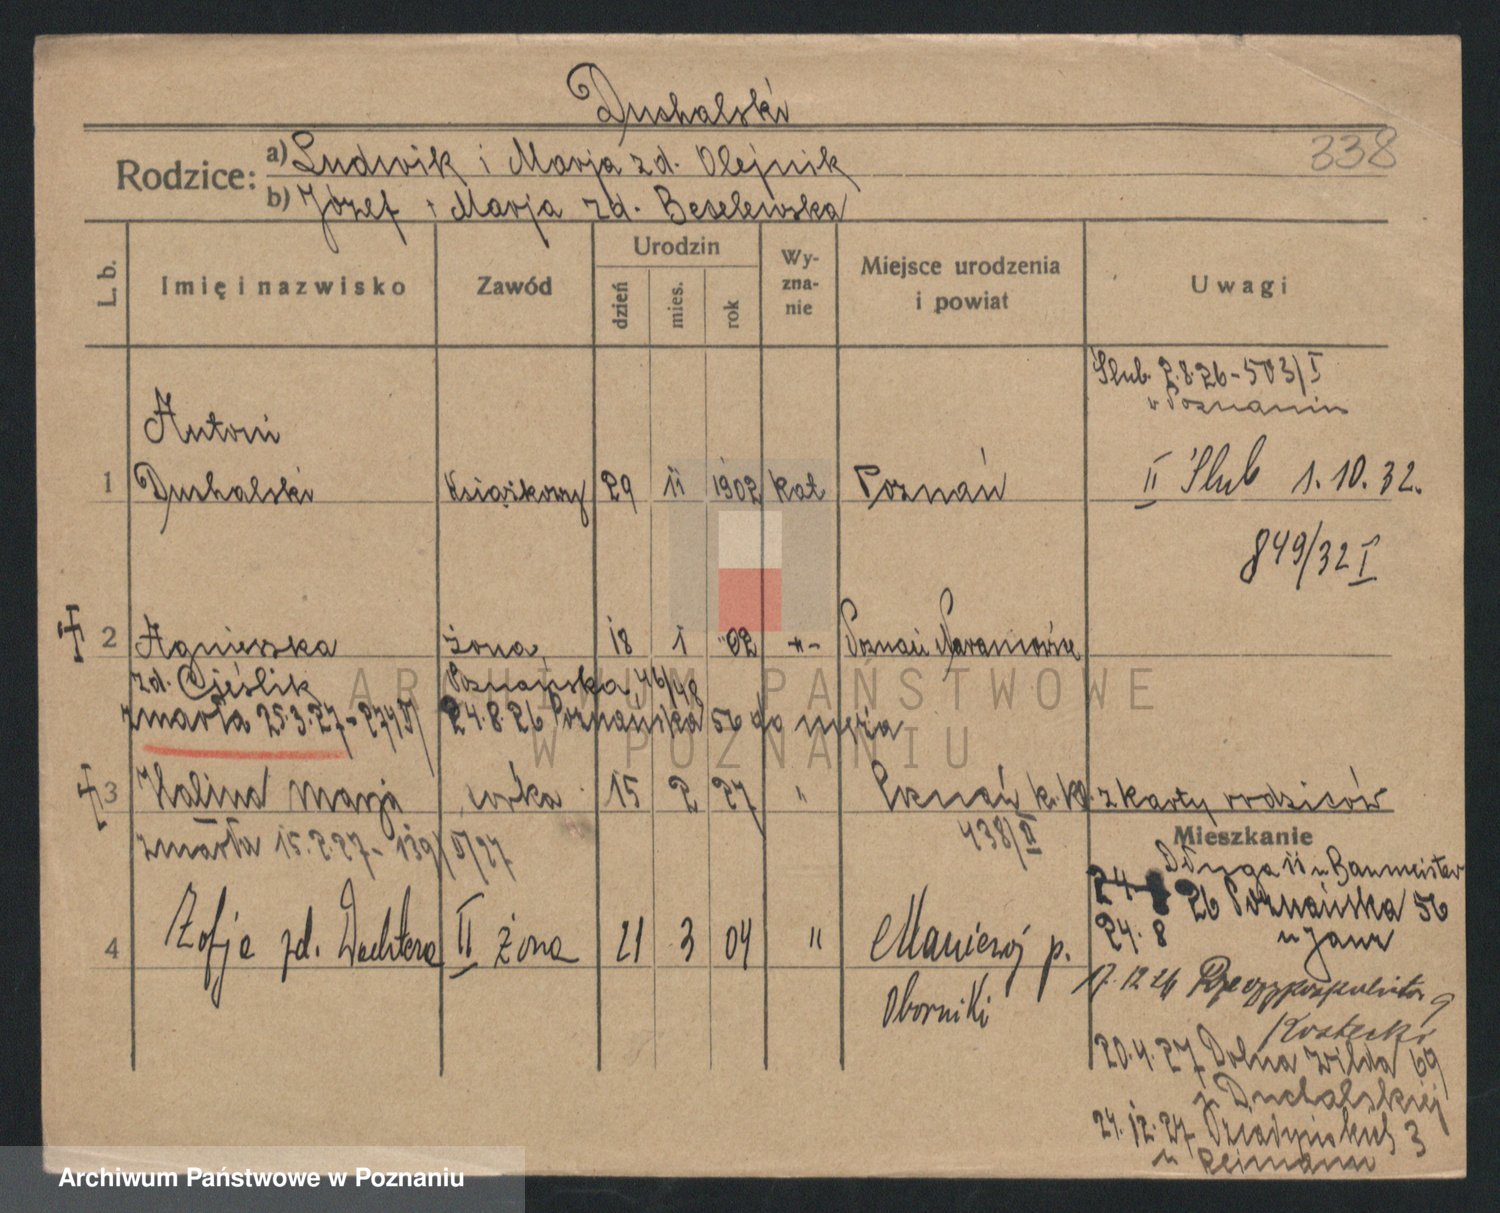 Duchalski
338
Rodzice: a) Ludwik i Marja zd. Olejnik
b) Józef i Marja zd. Beselewska
L. b.
Imię i nazwisko
Zawód
Urodzin
dzień
mies.
rok
Wy-
zna-
nie
Miejsce urodzenia
i powiat
Uwagi
Ślub 2.8.26 - 503/I
w Poznaniu
Antoni
1 Duchalski 29 11 1902 kat Poznań
II Ślub 1.10.32.
849/32 I
2 Agnieszka żona 18 1 "02 -"- Poznań Naramowice
zd. Cieślik Poznańska 46/48
zmarła 25.3.27 - 274/II 24.8.26 Poznańska 56 do męża
3 Halina Marja córka 15 2 27 " Poznań z karty rodziców
438/II
zmarła 15.2.27 - 139/II/27
Mieszkanie
Długa 11 u Baumeister
26 Poznańska 56
24.8
4 Zofja zd. Wachtera II żona 21 3 04 " Maniewo p.
Oborniki
17.12.26 Rzeczypospolitej 9
Kostecki
20.4.27 Dolna Wilda 69
u Duchalskiej
27.12.27 Działyńskich 3
u Reimann
ARCHIWUM PAŃSTWOWE
W POZNANIU
Archiwum Państwowe w Poznaniu